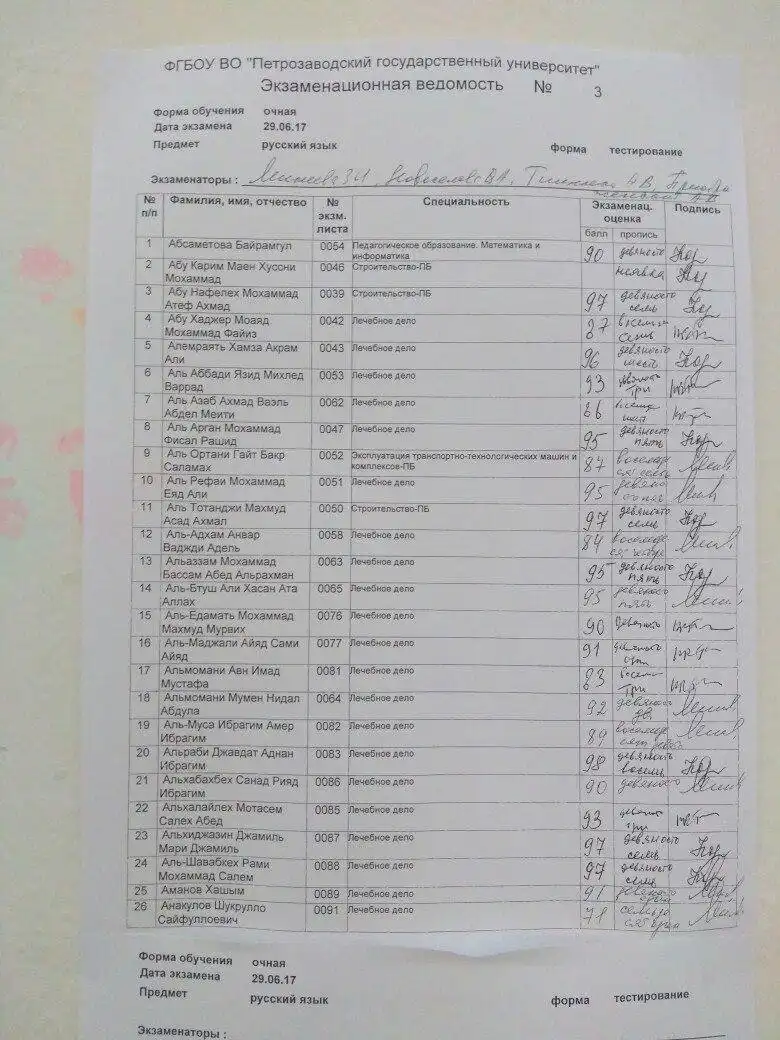 ФГБОУ ВО "Петрозаводский государственный университет"
Экзаменационная ведомость № 3
Форма обучения очная
Дата экзамена 29.06.17
Предмет русский язык форма тестирование
Экзаменаторы :
№ п/п Фамилия, имя, отчество № экзм. листа Специальность Экзаменац. оценка балл пропись Подпись
1 Абсаметова Байрамгул 0054 Педагогическое образование. Математика и информатика 90 девяносто
2 Абу Карим Маен Хуссни Мохаммад 0046 Строительство-ПБ неявка
3 Абу Нафелех Мохаммад Атеф Ахмад 0039 Строительство-ПБ 97 девяносто семь
4 Абу Хаджер Моаяд Мохаммад Файиз 0042 Лечебное дело 87
5 Алемраять Хамза Акрам Али 0043 Лечебное дело 96 девяносто шесть
6 Аль Аббади Язид Михлед Варрад 0053 Лечебное дело 93 три
7 Аль Азаб Ахмад Ваэль Абдел Меити 0062 Лечебное дело 86
8 Аль Арган Мохаммад Фисал Рашид 0047 Лечебное дело 95 девяносто пять
9 Аль Ортани Гайт Бакр Саламах 0052 Эксплуатация транспортно-технологических машин и комплексов-ПБ 87
10 Аль Рефаи Мохаммад Еяд Али 0051 Лечебное дело 95
11 Аль Тотанджи Махмуд Асад Ахмал 0050 Строительство-ПБ 97 девяносто семь
12 Аль-Адхам Анвар Ваджди Адель 0058 Лечебное дело 84
13 Альаззам Мохаммад Бассам Абед Альрахман 0063 Лечебное дело 95 девяносто пять
14 Аль-Бтуш Али Хасан Ата Аллах 0065 Лечебное дело 95 девяносто пять
15 Аль-Едамать Мохаммад Махмуд Мурвих 0076 Лечебное дело 90
16 Аль-Маджали Айяд Сами Айяд 0077 Лечебное дело 91
17 Альмомани Авн Имад Мустафа 0081 Лечебное дело 83 три
18 Альмомани Мумен Нидал Абдула 0064 Лечебное дело 92
19 Аль-Муса Ибрагим Амер Ибрагим 0082 Лечебное дело 89
20 Альраби Джавдат Аднан Ибрагим 0083 Лечебное дело 98 девяносто восемь
21 Альхабахбех Санад Рияд Ибрагим 0086 Лечебное дело 90 девяносто
22 Альхалайлех Мотасем Салех Абед 0085 Лечебное дело 93 три
23 Альхиджазин Джамиль Мари Джамиль 0087 Лечебное дело 97 девяносто семь
24 Аль-Шавабкех Рами Мохаммад Салем 0088 Лечебное дело 97 девяносто семь
25 Аманов Хашым 0089 Лечебное дело 91
26 Анакулов Шукрулло Сайфуллоевич 0091 Лечебное дело 71
Форма обучения очная
Дата экзамена 29.06.17
Предмет русский язык форма тестирование
Экзаменаторы :